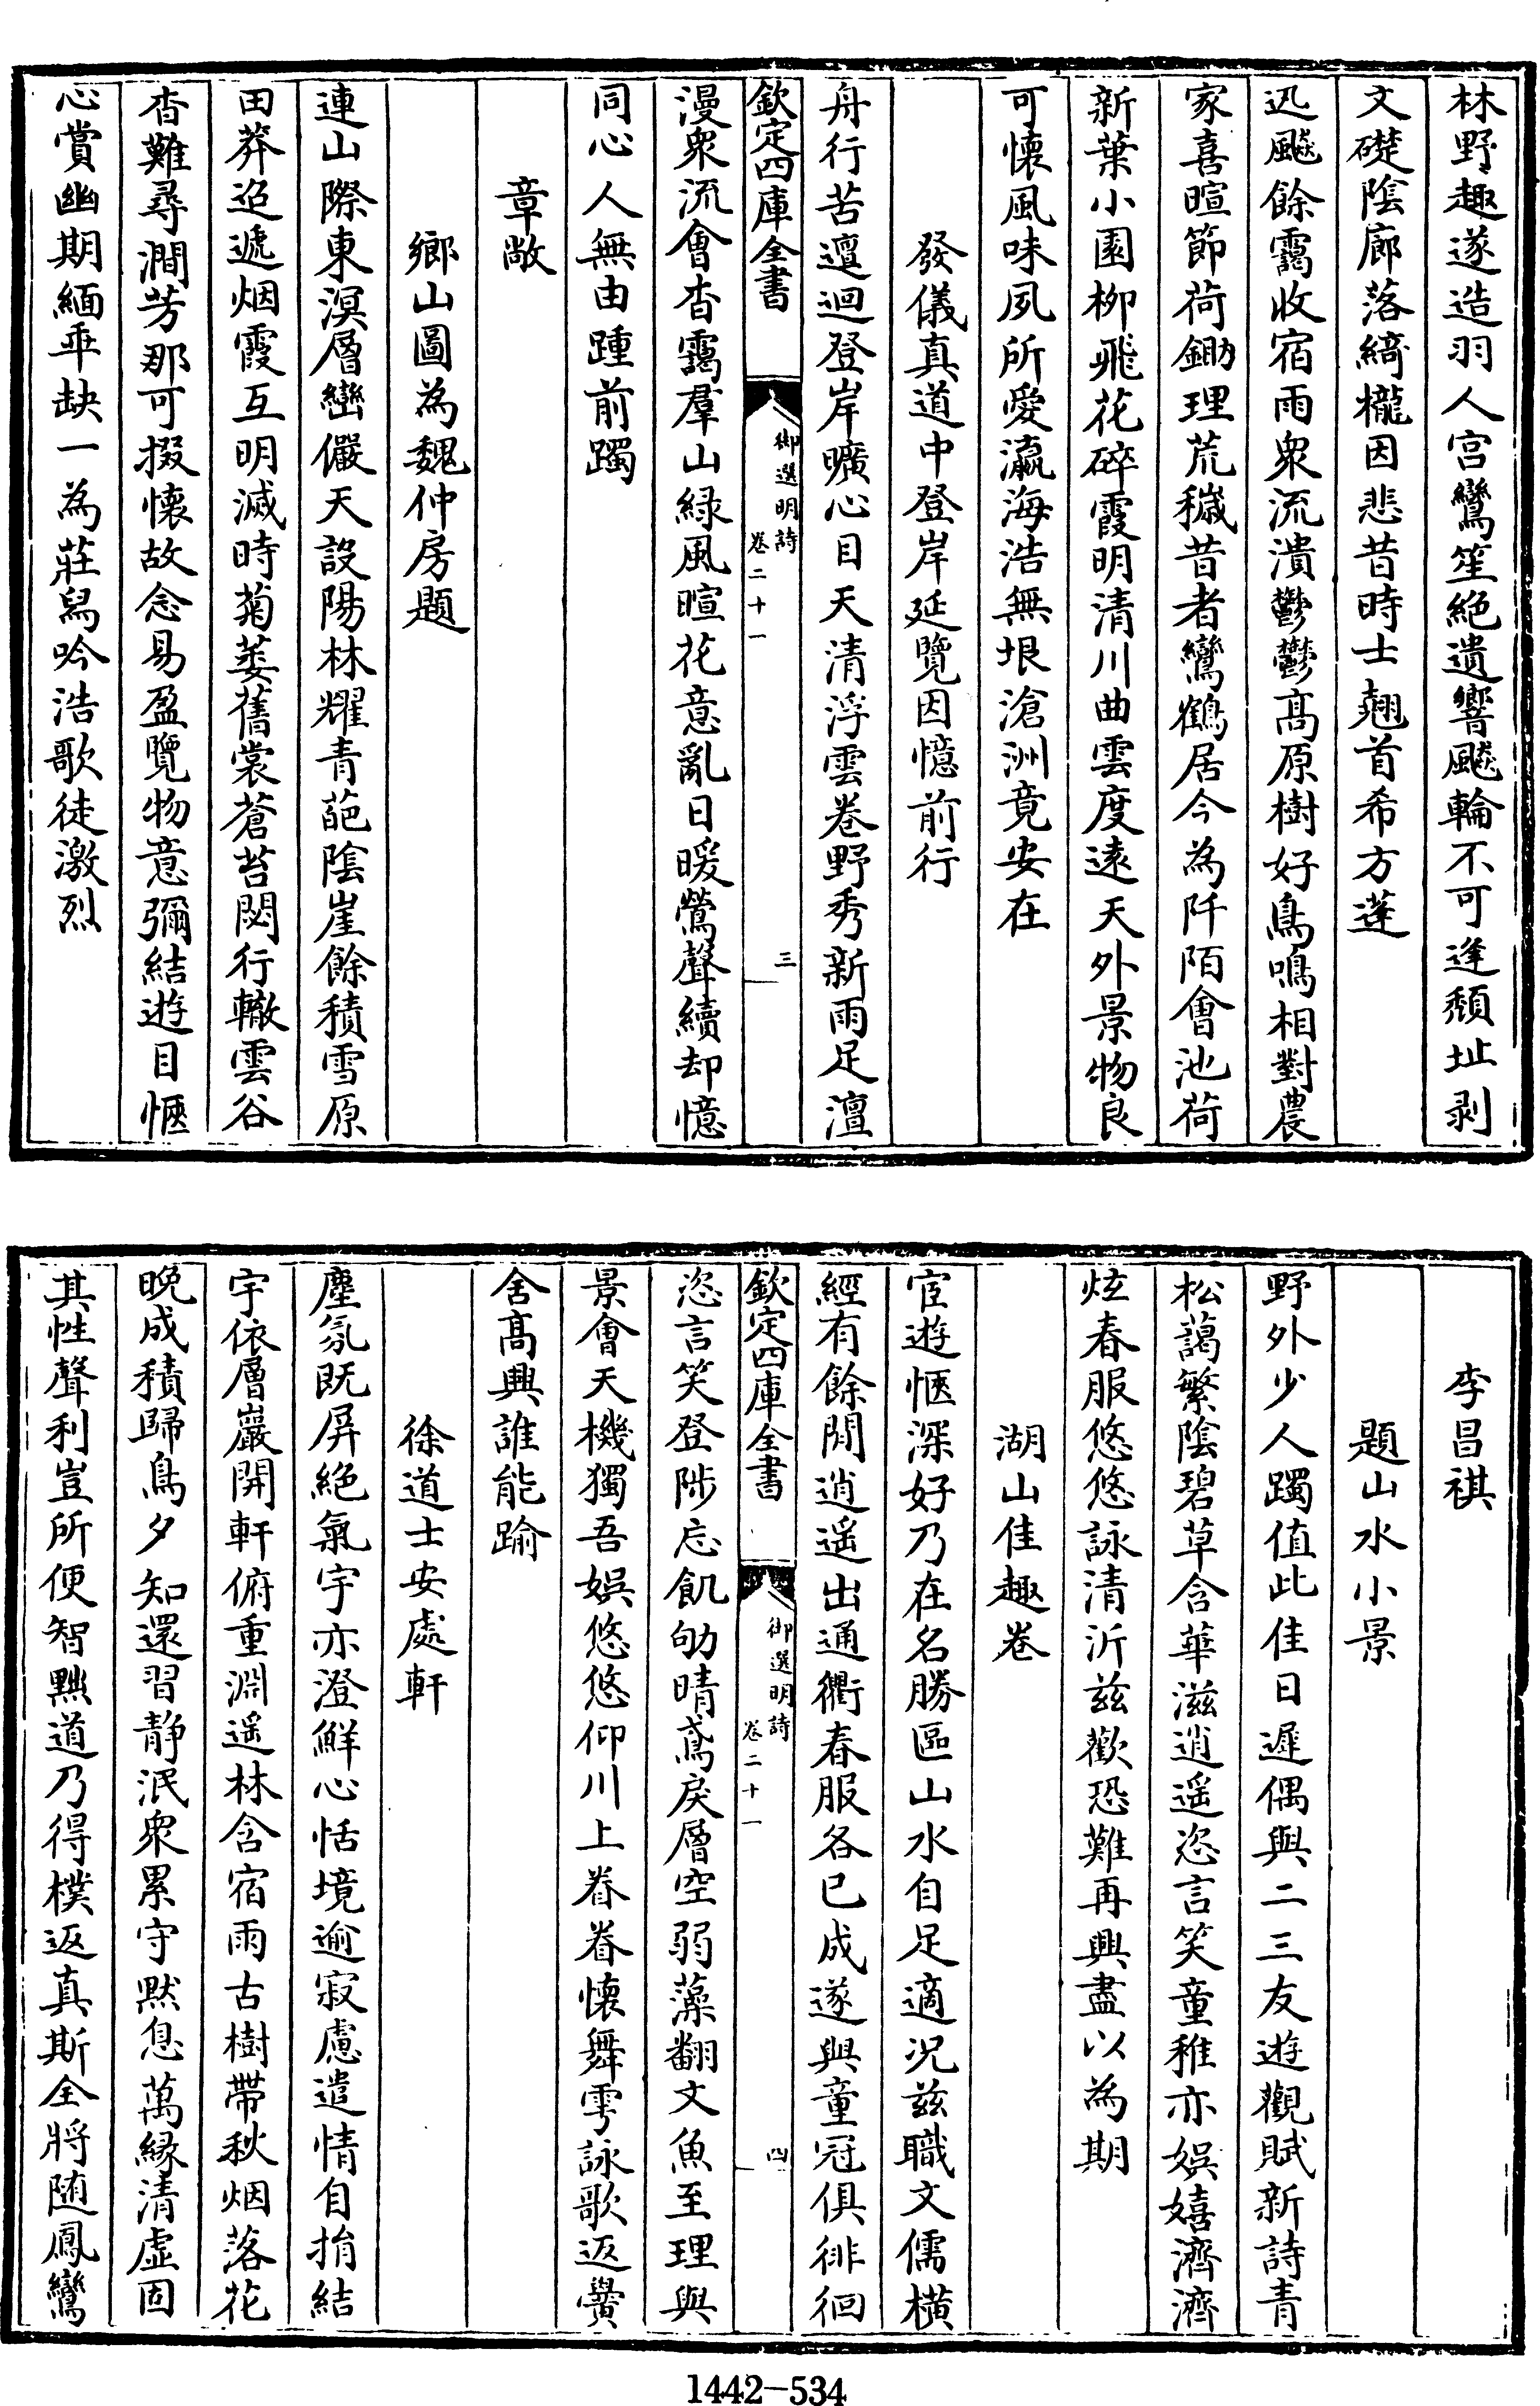 林野趣遂造羽人宮鸞笙絶遺響飈輪不可逢頽址剥
文礎陰廊落綺櫳因悲昔時士翹首希方蓬
迅飈餘靄收宿雨衆流潰鬱鬱髙原樹好鳥鳴相對農
家喜暄節荷鋤理荒穢昔者鸞鶴居今為阡陌會池荷
新葉小園柳飛花碎霞明清川曲雲度逺天外景物良
可懐風味夙所愛瀛海浩無垠滄洲竟安在
發儀真道中登岸延覽因憶前行
舟行苦邅迴登岸曠心目天清浮雲卷野秀新雨足澶
欽定四庫全書
御選明詩
卷二十一
三
漫衆流會杳靄羣山緑風暄花意亂日暖鶯聲續却憶
同心人無由踵前躅
章敞
鄉山圖為魏仲房題
連山際東溟層巒儼天設陽林耀青葩陰崖餘積雪原
田莽迢遞烟霞互明滅時菊萎舊裳蒼苔閟行轍雲谷
杳難尋澗芳那可掇懐故念易盈覽物意彌結遊目愜
心賞幽期緬乖缺一為莊舄吟浩歌徒激烈
李昌祺
題山水小景
野外少人躅值此佳日遲偶與二三友遊觀賦新詩青
松藹繁陰碧草含華滋逍遥恣言笑童稚亦娯嬉濟濟
炫春服悠悠詠清沂兹歡恐難再興盡以為期
湖山佳趣卷
宦遊愜深好乃在名勝區山水自足適況兹職文儒横
經有餘閒逍遥出通衢春服各已成遂與童冠俱徘徊
欽定四庫全書
御選明詩
卷二十一
四
恣言笑登陟忘飢劬晴鳶戾層空弱藻翻文魚至理與
景會天機獨吾娯悠悠仰川上眷眷懐舞雩詠歌返黌
舍髙興誰能踰
徐道士安處軒
塵氛既屏絶氣宇亦澄鮮心恬境逾寂慮遣情自捐結
宇依層巖開軒俯重淵遥林含宿雨古樹帶秋烟落花
晚成積歸鳥夕知還習静泯衆累守黙息萬縁清虚固
其性聲利豈所便智黜道乃得樸返真斯全將随鳳鸞
1442-534